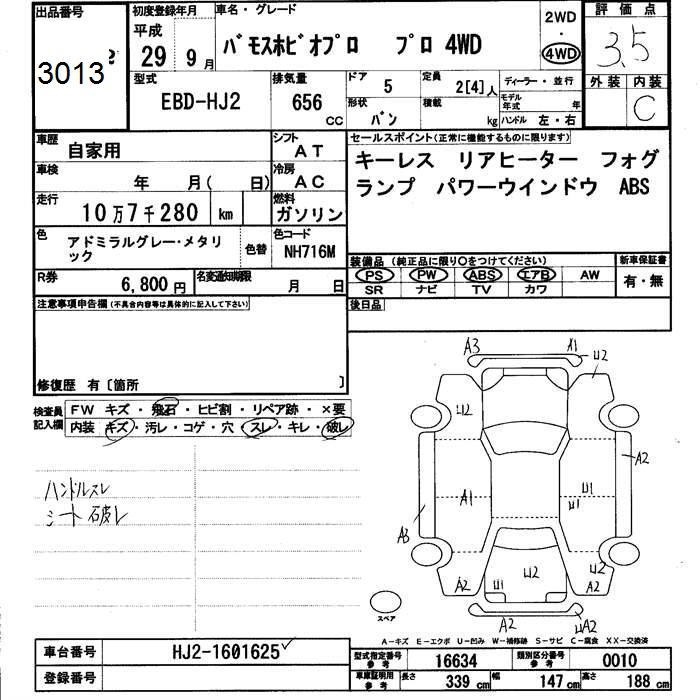 出品番号
3013
初度登録年月
平成
29年 9月
車名・グレード
バモスホビオプロ プロ 4WD
2WD
・
4WD
評価点
3.5
外装 内装
C
型式
EBD-HJ2
排気量
656 cc
ドア 5
定員 2[4]人
ディーラー・並行
形状 バン
積載 kg
モデル年式 年
ハンドル 左・右
車歴
自家用
シフト
AT
車検
年 月( 日)
冷房
AC
走行
10万7千280 km
燃料
ガソリン
色
アドミラルグレー・メタリ
ック
色替
色コード
NH716M
R券
6,800円
名変通知期限
月 日
セールスポイント(正常に機能するものに限ります)
キーレス リアヒーター フォグ
ランプ パワーウインドウ ABS
装備品 (純正品に限り○をつけてください)
PS PW ABS エアB AW
SR ナビ TV カワ
新車保証書
有・無
後日品
注意事項申告欄(不具合内容等は具体的に記入して下さい)
修復歴 有〔箇所 〕
検査員
記入欄
FW キズ・飛石・ヒビ割・リペア跡・×要
内装 キズ・汚レ・コゲ・穴・スレ・キレ・破レ
ハンドルスレ
シート破レ
A3 A1 U2
U2
A2
A1 U1
U1
A3
A2 U1 U2 U2
A2
A2 UA2
スペア
A-キズ E-エクボ U-凹み W-補修跡 S-サビ C-腐食 XX-交換済
車台番号 HJ2-1601625
登録番号
型式指定番号
参考
16634
類別区分番号
参考
0010
車庫証明用
参考
長さ 339cm 幅 147cm 高さ 188cm